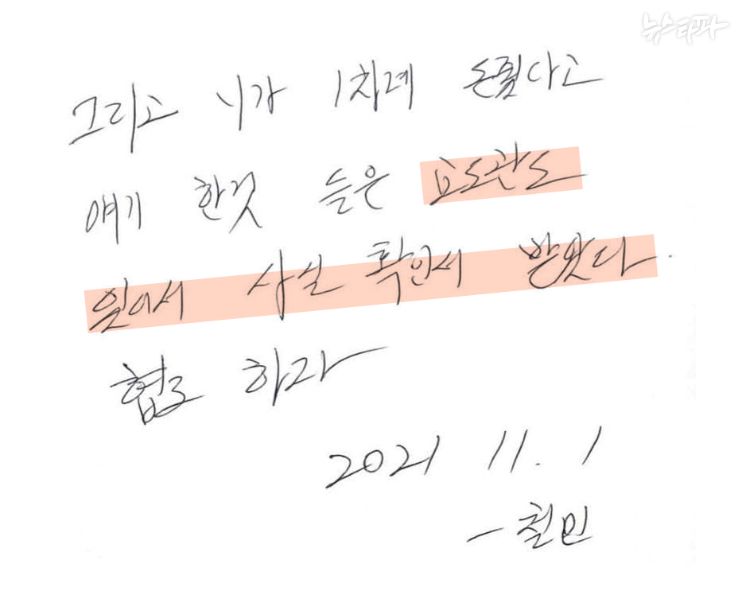 뉴스타파
그리고 니가 1차례 돈줬다고
얘기 한것 들은 교도관도
있어서 사실 확인서 받았다.
협조 하라
2021 11. 1
- 철민